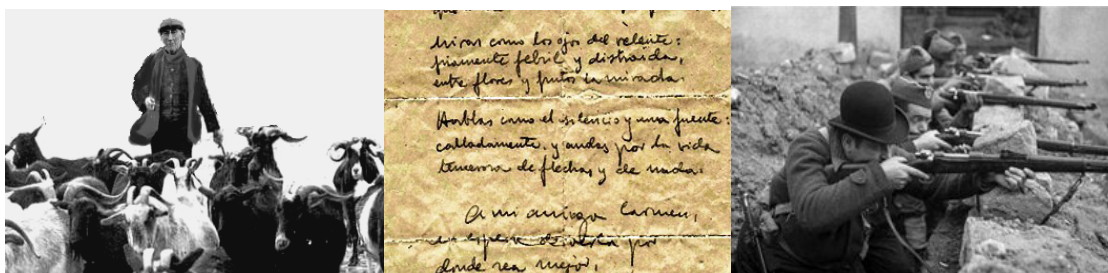 miras como los ojos del relente:
piamente febril y distraída,
entre flores y frutos la mirada.
Hablas como el silencio y una fuente:
calladamente, y andas por la vida
temerosa de flechas y de nada.
A mi amiga Carmen,
por
donde sea mejor,